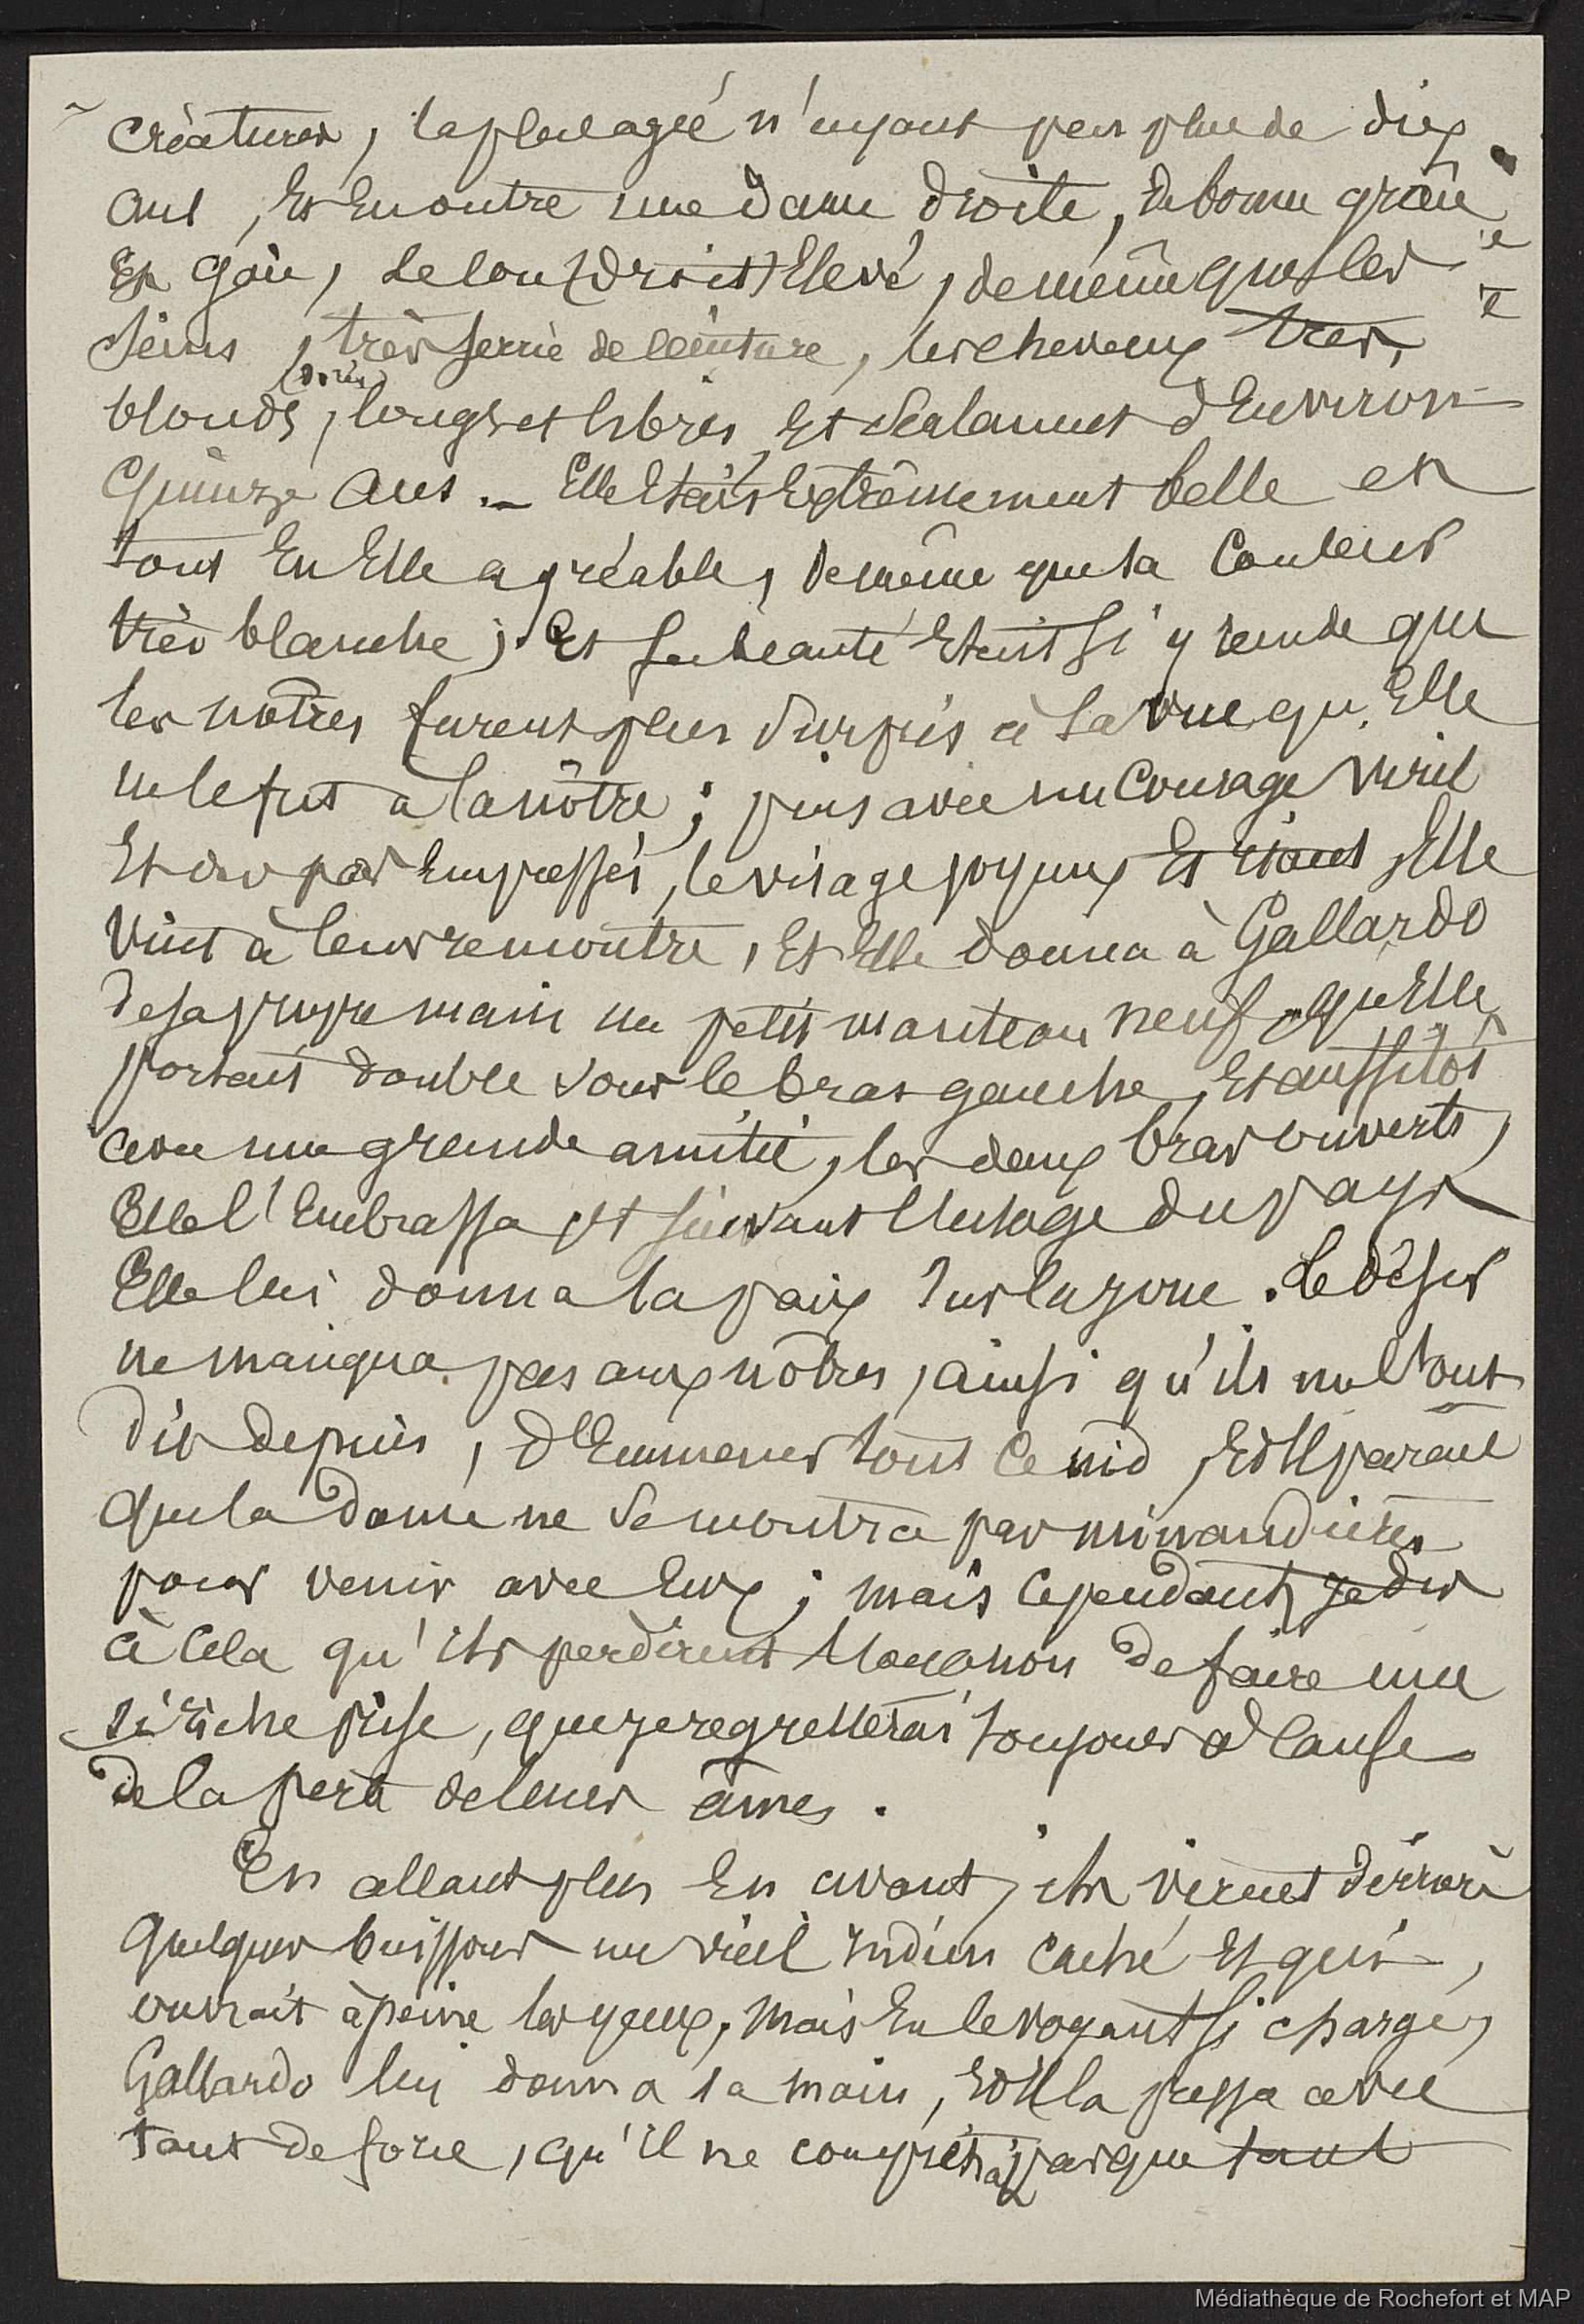 créatures, la plus agée n'ayant pas plus de dix
ans, Et En outre une dame droite, de bonne grâce
Et gaie, le cou (droit) Elevé, de même que les
seins, très serrée de ceinture, les cheveux tres
(dorés)
blonds, longs et libres, Et seulement d'Environ
Quinze ans. _ Elle Etait Extrêmement belle et
tout En Elle agréable, de même que sa couleur
très blanche ; Et sa beauté Etait si grande que
les nôtres furent plus surpris à sa vue qu'Elle
ne le fut à la nôtre ; puis avec un courage viril
Et des pas Empressés, le visage joyeux Et riant, Elle
vint à leur rencontre, Et Elle donna à Gallardo
de sa propre main un petit manteau neuf qu'Elle
portait double sous le bras gauche, Et aussitôt
avec une grande amitié, les deux bras ouverts,
Elle l'Embrassa Et suivant l'usage du pays
Elle lui donna la paix sur la joue. Le désir
ne manqua pas aux nôtres, ainsi qu'ils me l'ont
dit depuis, d'Emmener tout ce nid, Et Il paraît
que la dame ne se montra pas minaudière
pour venir avec Eux ; mais cependant je dis
à cela qu'ils perdirent l'occasion de faire une
si riche prise, que je regretterai toujours à cause
de la perte de leurs âmes.
En allant plus En avant, ils virent dérrière
Quelques buissons un vieil indien caché Et qui,
ouvrait à peine les yeux, mais En le voyant si chargé,
Gallardo lui donna la main, Et Il la pressa avec
tant de force, qu'il ne comprit pas que tant
Médiathèque de Rochefort et MAP